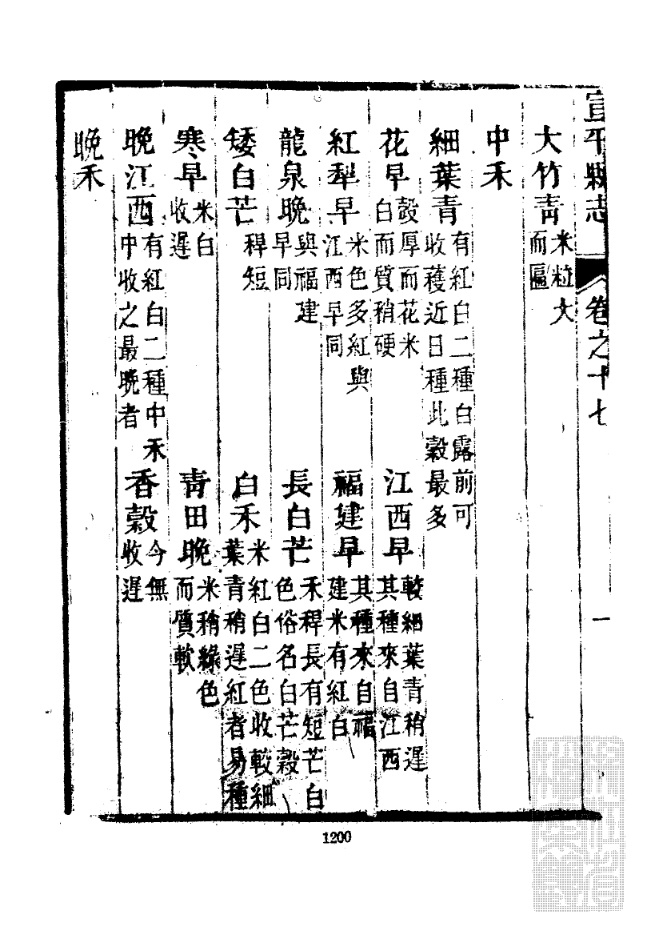 宣平縣志 卷之十七 一
大竹青 米粒大而匾
中禾
細葉青 有紅白二種白露前可收穫近日種此穀最多
花早 穀厚而花米白而質稍硬
江西早 較細葉青稍遲其種來自江西
紅犁早 米色多紅與江西早同
福建早 其種來自福建米有紅白
龍泉晚 與福建早同
長白芒 禾稈長有短芒白色俗名白芒穀
矮白芒 稈短
白禾 米紅白二色收較細葉青稍遲紅者易種
寒早 米白收遲
青田晚 米稍綠色而質軟
晚江西 有紅白二種中禾中收之最晚者
香穀 今無收遲
晚禾
1200